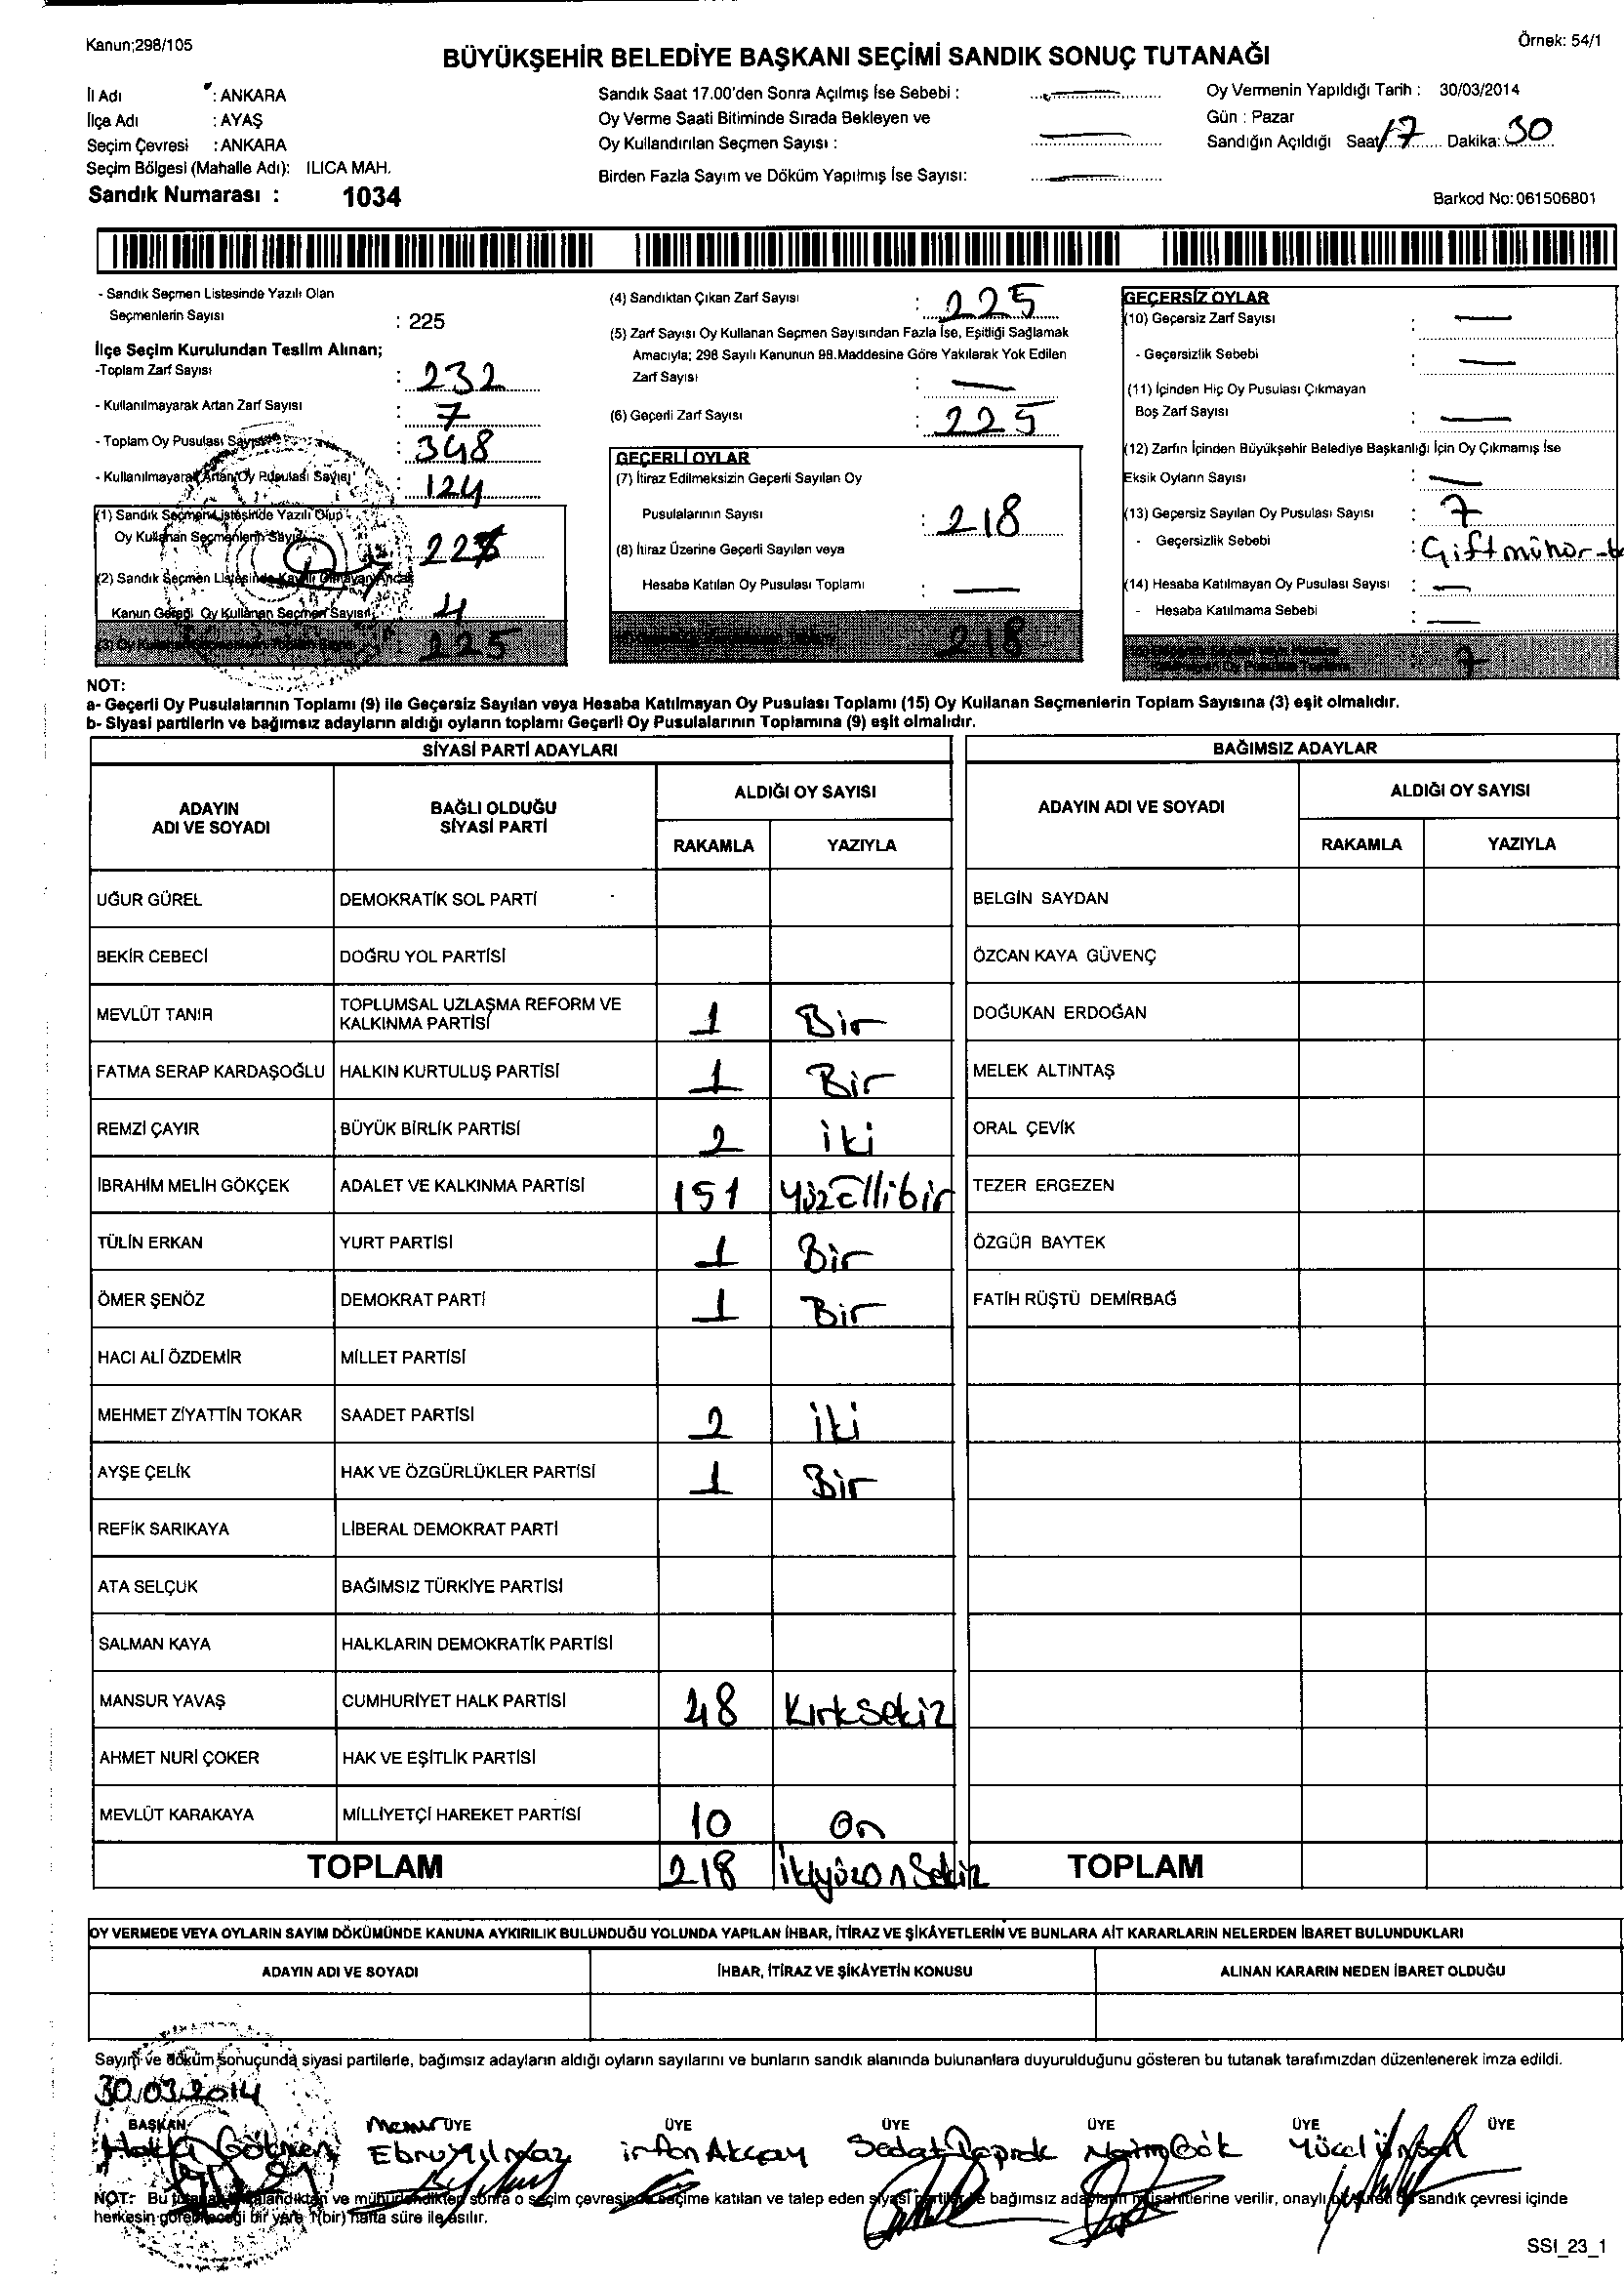 Kanun;298/105
Örnek: 54/1
BÜYÜKŞEHİR BELEDİYE BAŞKANI SEÇİMİ SANDIK SONUÇ TUTANAĞI
İl Adı : ANKARA
İlçe Adı : AYAŞ
Seçim Çevresi : ANKARA
Seçim Bölgesi (Mahalle Adı): ILICA MAH.
Sandık Numarası : 1034
Sandık Saat 17.00'den Sonra Açılmış İse Sebebi :
Oy Verme Saati Bitiminde Sırada Bekleyen ve
Oy Kullandırılan Seçmen Sayısı :
Birden Fazla Sayım ve Döküm Yapılmış İse Sayısı:
Oy Vermenin Yapıldığı Tarih : 30/03/2014
Gün : Pazar
Sandığın Açıldığı Saat 17 Dakika: 30
Barkod No:061506801
- Sandık Seçmen Listesinde Yazılı Olan
Seçmenlerin Sayısı : 225
İlçe Seçim Kurulundan Teslim Alınan;
-Toplam Zarf Sayısı : 232
- Kullanılmayarak Artan Zarf Sayısı : 7
- Toplam Oy Pusulası Sayısı : 348
- Kullanılmayarak Artan Oy Pusulası Sayısı : 124
(1) Sandık Seçmen Listesinde Yazılı Olup
Oy Kullanan Seçmenlerin Sayısı
(2) Sandık Seçmen Listesinde Kayıtlı Olmayan Ancak
Kanun Gereği Oy Kullanan Seçmen Sayısı 4
225
(4) Sandıktan Çıkan Zarf Sayısı : 225
(5) Zarf Sayısı Oy Kullanan Seçmen Sayısından Fazla İse, Eşitliği Sağlamak
Amacıyla; 298 Sayılı Kanunun 98.Maddesine Göre Yakılarak Yok Edilen
Zarf Sayısı : —
(6) Geçerli Zarf Sayısı : 225
GEÇERLİ OYLAR
(7) İtiraz Edilmeksizin Geçerli Sayılan Oy
Pusulalarının Sayısı : 218
(8) İtiraz Üzerine Geçerli Sayılan veya
Hesaba Katılan Oy Pusulası Toplamı : —
218
GEÇERSİZ OYLAR
(10) Geçersiz Zarf Sayısı : —
- Geçersizlik Sebebi : —
(11) İçinden Hiç Oy Pusulası Çıkmayan
Boş Zarf Sayısı : —
(12) Zarfın İçinden Büyükşehir Belediye Başkanlığı İçin Oy Çıkmamış İse
Eksik Oyların Sayısı : —
(13) Geçersiz Sayılan Oy Pusulası Sayısı : 7
- Geçersizlik Sebebi : Çift mühür
(14) Hesaba Katılmayan Oy Pusulası Sayısı : —
- Hesaba Katılmama Sebebi : —
7
NOT:
a- Geçerli Oy Pusulalarının Toplamı (9) ile Geçersiz Sayılan veya Hesaba Katılmayan Oy Pusulası Toplamı (15) Oy Kullanan Seçmenlerin Toplam Sayısına (3) eşit olmalıdır.
b- Siyasi partilerin ve bağımsız adayların aldığı oyların toplamı Geçerli Oy Pusulalarının Toplamına (9) eşit olmalıdır.
SİYASİ PARTİ ADAYLARI
BAĞIMSIZ ADAYLAR
ADAYIN ADI VE SOYADI
BAĞLI OLDUĞU SİYASİ PARTİ
ALDIĞI OY SAYISI
RAKAMLA YAZIYLA
ADAYIN ADI VE SOYADI
ALDIĞI OY SAYISI
RAKAMLA YAZIYLA
UĞUR GÜREL DEMOKRATİK SOL PARTİ BELGİN SAYDAN
BEKİR CEBECİ DOĞRU YOL PARTİSİ ÖZCAN KAYA GÜVENÇ
MEVLÜT TANIR TOPLUMSAL UZLAŞMA REFORM VE KALKINMA PARTİSİ 1 Bir DOĞUKAN ERDOĞAN
FATMA SERAP KARDAŞOĞLU HALKIN KURTULUŞ PARTİSİ 1 Bir MELEK ALTINTAŞ
REMZİ ÇAYIR BÜYÜK BİRLİK PARTİSİ 2 iki ORAL ÇEVİK
İBRAHİM MELİH GÖKÇEK ADALET VE KALKINMA PARTİSİ 151 Yüzellibir TEZER ERGEZEN
TÜLİN ERKAN YURT PARTİSİ 1 Bir ÖZGÜR BAYTEK
ÖMER ŞENÖZ DEMOKRAT PARTİ 1 Bir FATİH RÜŞTÜ DEMİRBAĞ
HACI ALİ ÖZDEMİR MİLLET PARTİSİ
MEHMET ZİYATTİN TOKAR SAADET PARTİSİ 2 iki
AYŞE ÇELİK HAK VE ÖZGÜRLÜKLER PARTİSİ 1 Bir
REFİK SARIKAYA LİBERAL DEMOKRAT PARTİ
ATA SELÇUK BAĞIMSIZ TÜRKİYE PARTİSİ
SALMAN KAYA HALKLARIN DEMOKRATİK PARTİSİ
MANSUR YAVAŞ CUMHURİYET HALK PARTİSİ 48 Kırksekiz
AHMET NURİ ÇOKER HAK VE EŞİTLİK PARTİSİ
MEVLÜT KARAKAYA MİLLİYETÇİ HAREKET PARTİSİ 10 On
TOPLAM 218 ikiyüzonsekiz TOPLAM
OY VERMEDE VEYA OYLARIN SAYIM DÖKÜMÜNDE KANUNA AYKIRILIK BULUNDUĞU YOLUNDA YAPILAN İHBAR, İTİRAZ VE ŞİKÂYETLERİN VE BUNLARA AİT KARARLARIN NELERDEN İBARET BULUNDUKLARI
ADAYIN ADI VE SOYADI İHBAR, İTİRAZ VE ŞİKÂYETİN KONUSU ALINAN KARARIN NEDEN İBARET OLDUĞU
Sayım ve döküm sonuçunda siyasi partilerle, bağımsız adayların aldığı oyların sayılarını ve bunların sandık alanında bulunanlara duyurulduğunu gösteren bu tutanak tarafımızdan düzenlenerek imza edildi.
30.03.2014
BAŞKAN Memur ÜYE ÜYE ÜYE ÜYE ÜYE ÜYE
Hakkı Gökmen Ebru Yılmaz irfan Akçay Sedat Toprak Naim Gök Yücel Ünsal
NOT: Bu tutanak ve mühürlendikten sonra o seçim çevresinde seçime katılan ve talep eden siyasi partiler ve bağımsız adayların müşahitlerine verilir, onaylı bir sureti de sandık çevresi içinde
herkesin görebileceği bir yere 1(bir) hafta süre ile asılır.
SSI_23_1